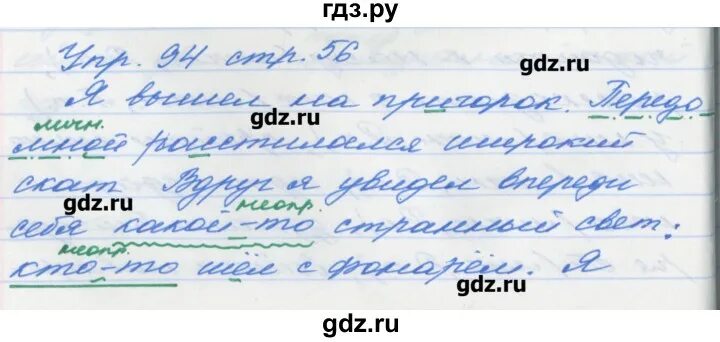 гдз.ру
Упр. 94 стр. 56
gdz.ru
Я вышел на пригорок. Передо
gdz.ru
личн.
мной расстилался широкий
скат Вдруг я увидел впереди
gdz.ru
неопр.
себя какой-то странный свет:
неопр.
кто-то шёл с фонарём. Я
gdz.ru
gdz.ru